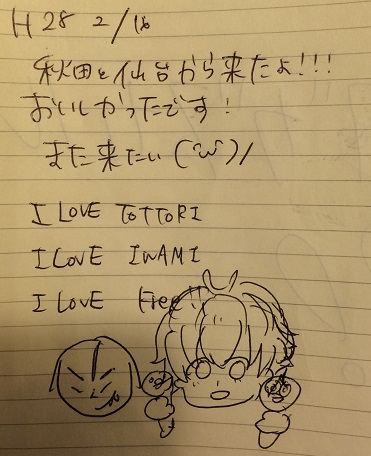 H28 2/16
秋田と仙台から来たよ!!!
おいしかったです!
また来たい(^ω^)/
I LOVE TOTTORI
I LOVE IWAMI
I LOVE Free!!